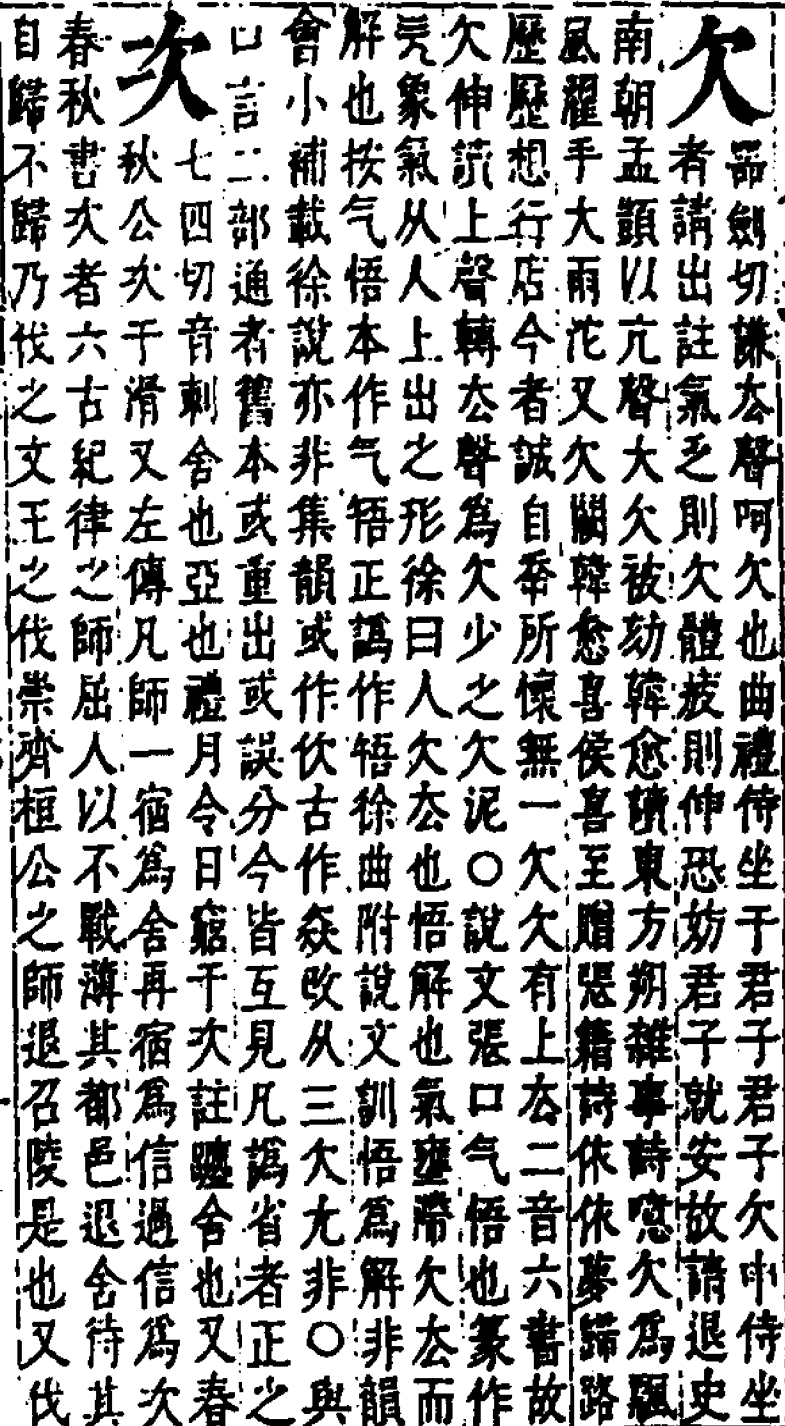 欠器劍切謙厺聲呵欠也曲禮侍坐于君子君子欠申侍坐
者請出註氣乏則欠體疲則伸恐妨君子就安故請退史
南朝孟顗以亢聲大欠被劾韓愈讀東方朔雜事詩噫欠為飄
風濯手大雨沱又欠關韓愈喜侯喜至贈張籍詩依依夢歸路
歷歷想行店今者誠自幸所懷無一欠欠有上厺二音六書故
欠伸讀上聲轉厺聲為欠少之欠泥〇說文張口气悟也篆作
象氣从人上出之形徐曰人欠厺也悟解也氣壅滯欠厺而
解也按气悟本作气啎正譌作啎徐曲附說文訓悟為解非韻
會小補載徐說亦非集韻或作㐸古作㱃改从三欠尤非〇與
口言二部通者舊本或重出或誤分今皆互見凡譌省者正之
次七四切音刺舍也亞也禮月令日窮于次註躔舍也又春
秋公次于滑又左傳凡師一宿為舍再宿為信過信為次
春秋書次者六古紀律之師屈人以不戰薄其都邑退舍待其
自歸不歸乃伐之文王之伐崇齊桓公之師退召陵是也又伐